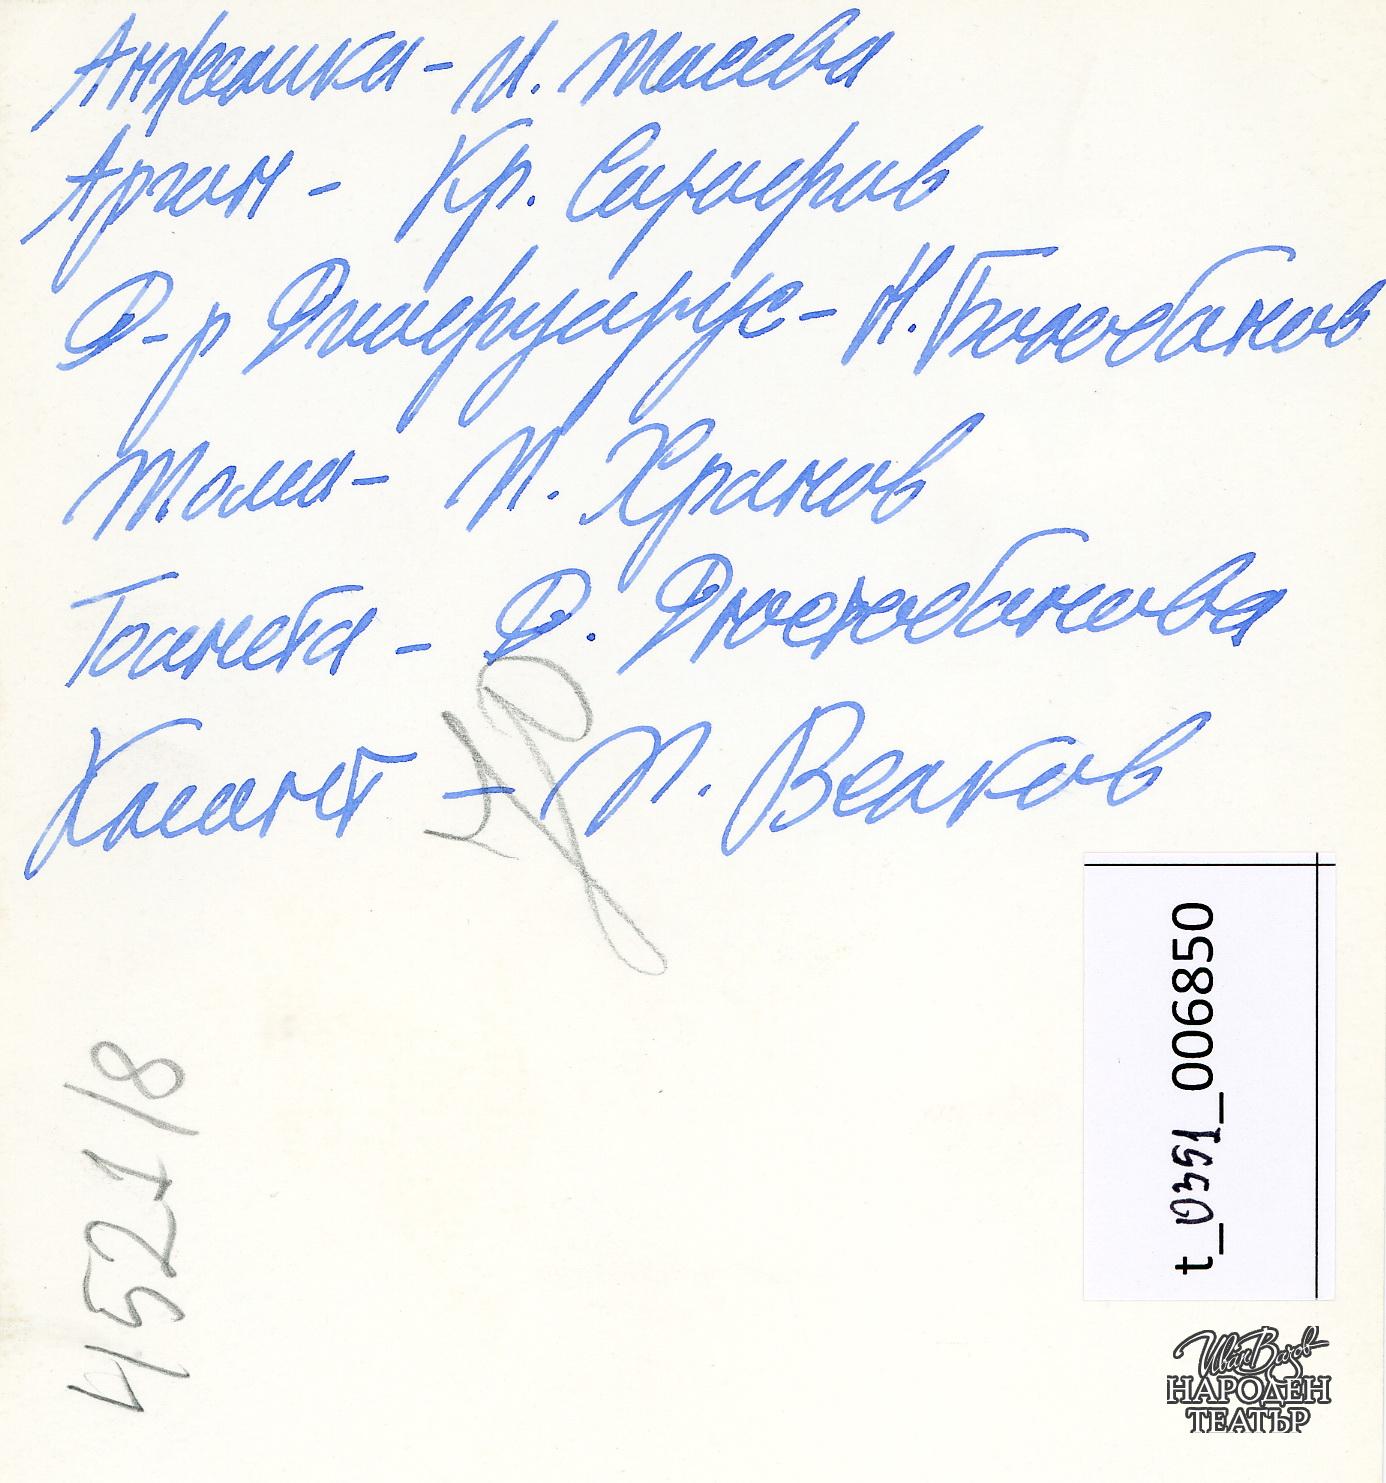 Анжелика - И. Тасева
Арган - Кр. Сарафов
Д-р Диафуарус - Н. Балабанов
Тома - И. Хранов
Тоанета - Д. Дюстабанова
Клеант - П. Велков
4521/8
t_0351_006850
Иван Вазов
НАРОДЕН
ТЕАТЪР